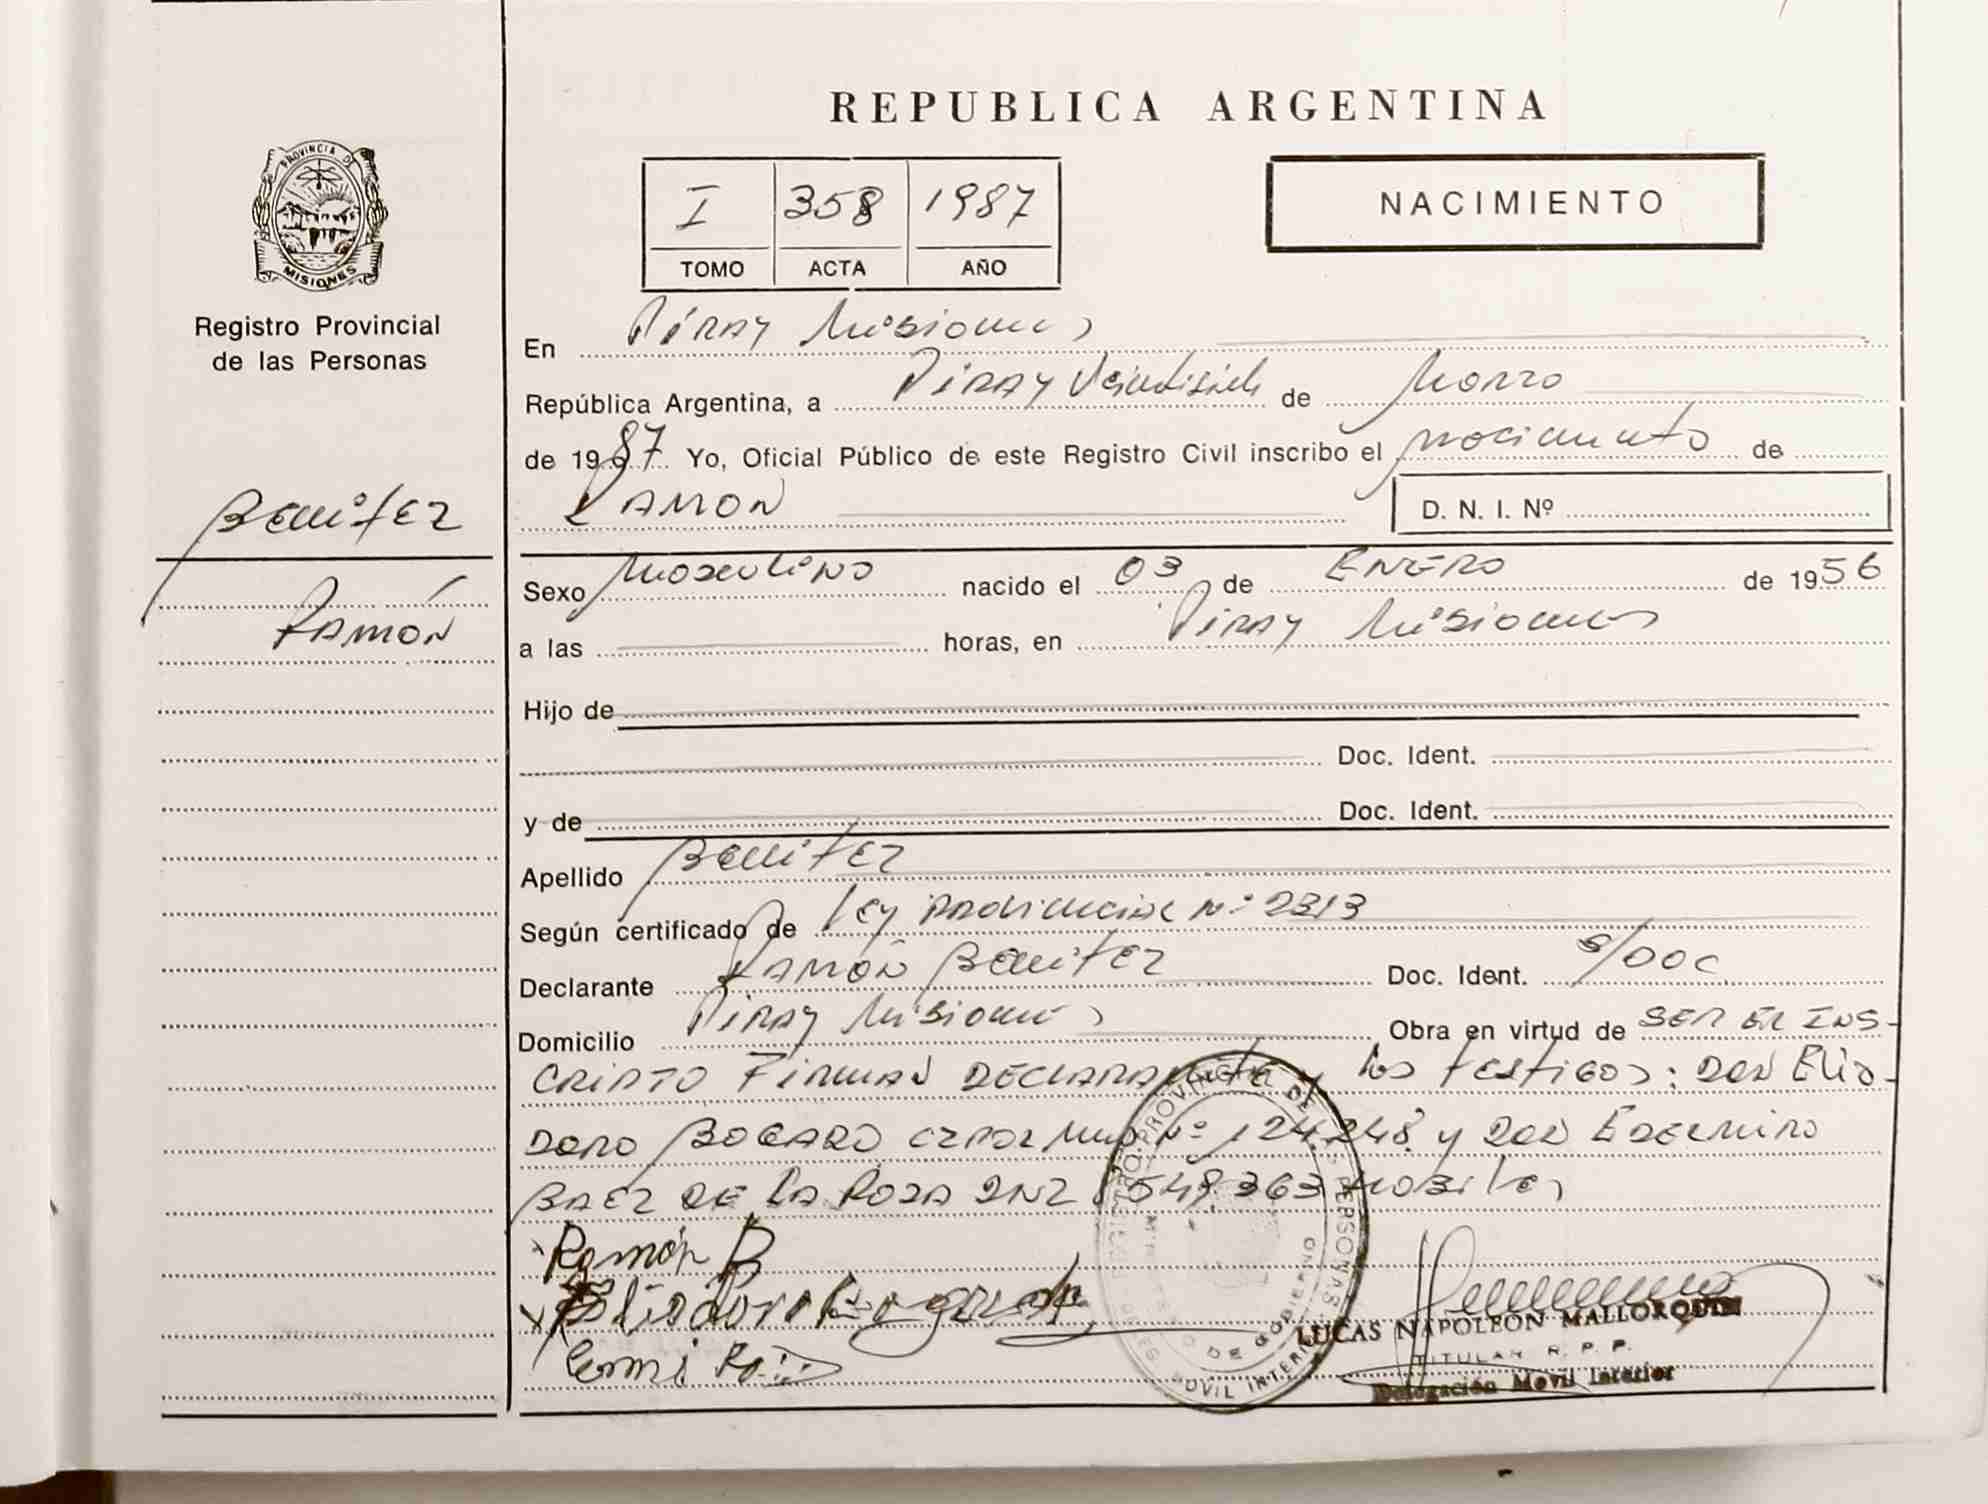 REPUBLICA ARGENTINA
PROVINCIA DE
MISIONES
Registro Provincial
de las Personas
I 358 1987
TOMO ACTA AÑO
NACIMIENTO
Benitez
Ramón
En Piray Misiones
República Argentina, a Piray Veintisiete de Marzo
de 1987 Yo, Oficial Público de este Registro Civil inscribo el nacimiento de
RAMON D. N. I. Nº
Sexo Masculino nacido el 03 de ENERO de 1956
a las horas, en Piray Misiones
Hijo de
Doc. Ident.
y de Doc. Ident.
Apellido Benitez
Según certificado de Ley Provincial Nº 2313
Declarante Ramón Benitez Doc. Ident. S/DOC
Domicilio Piray Misiones Obra en virtud de SER EL INS-
CRIPTO Firman DECLARANTE y los testigos: DON Elio-
DORO BOGADO Nº 124.248 y DON EDELMIRO
BAEZ DE LA ROSA DNI 549.363 Hábiles
Ramón B
LUCAS NAPOLEON MALLORQUIN
TITULAR R. P. P.
Delegación Movil Interior
REGISTRO PROVINCIAL DE LAS PERSONAS
MOVIL INTERIOR
DE GOBIERNO